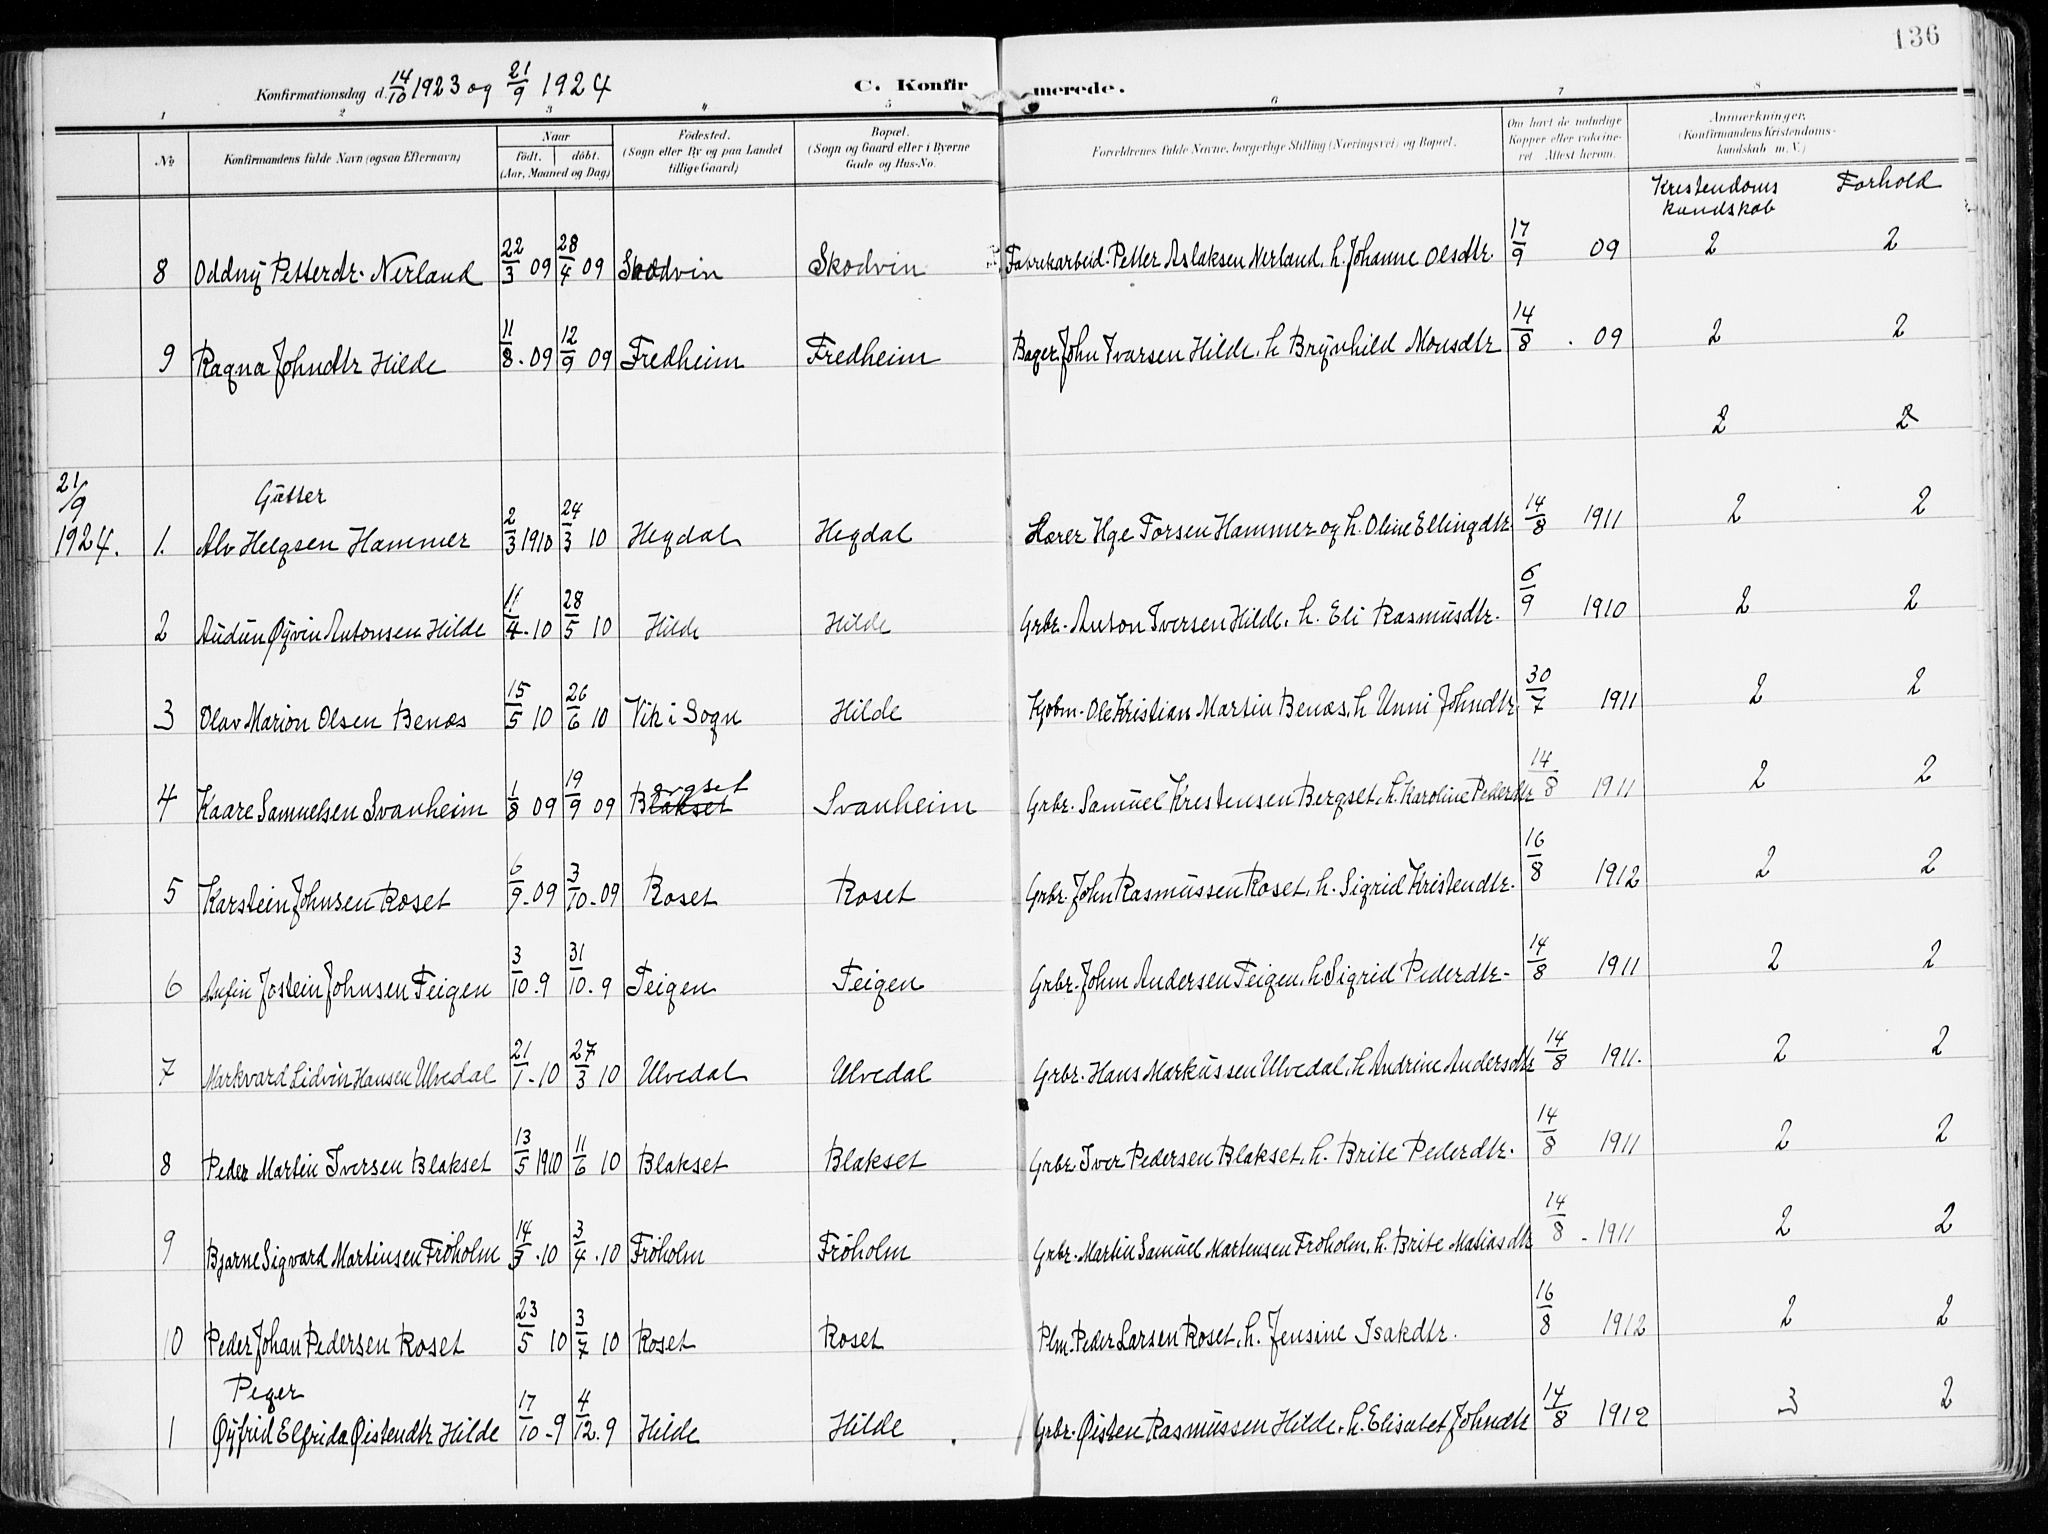 136
Konfirmationsdag d. 14/10 1923 og 21/9 1924 C. Konfirmerede.
1 2 3 4 5 6 7 8
No Konfirmandens fulde Navn (ogsaa Efternavn) Naar født. døbt. (Aar, Maaned og Dag) Fødested. (Sogn eller By og paa Landet tillige Gaard) Bopæl. (Sogn og Gaard eller i Byerne Gade og Hus-No. Forældrenes fulde Navne, borgerlige Stilling (Næringsvei) og Bopæl. Om havt de naturlige Kopper eller vakcineret Attest herom. Anmerkninger. (Konfirmandens Kristendomskundskab m. V.)
Kristendoms kundskab Forhold
8 Oddny Petterdr. Nerland 22/3 09 28/4 09 Skodvin Skodvin Fabrikarbeid. Petter Aslaksen Nerland, h. Johanne Olsdtr. 17/9 09 2 2
9 Ragna Johndtr Hilde 11/8 - 09 12/9 09 Fredheim Fredheim Bager John Ivarsen Hilde, h Brynhild Monsdtr 14/8 . 09 2 2
2 2
21/9 1924. Gutter
1. Alv Helgsen Hammer 2/3 1910 24/3 10 Hegdal Hegdal Lærer Hge Torsen Hammer og h. Oline Ellingdtr. 14/8 1911 2 2
2 Audun Øyvin Antonsen Hilde 11/4 - 10 28/5 10 Hilde Hilde Grbr. Anton Iversen Hilde, h. Eli Rasmusdtr. 6/9 1910 2 2
3 Olav Marion Olsen Benæs 15/5 10 26/6 10 Vik i Sogn Hilde Kjøbm. Ole Kristian Martin Benæs, h Unni Johndtr. 30/7 1911 2 2
4 Kaare Samuelsen Svanheim 1/8 09 19/9 09 Blakset ergset Svanheim Grbr. Samuel Kristensen Bergset, h. Karoline Pederdtr 14/8 1911 2 2
5 Karstein Johnsen Roset 6/9 - 09 3/10 - 09 Roset Roset Grbr. John Rasmussen Roset, h. Sigrid Kristendtr. 16/8 1912 2 2
6 Anfin Jostein Johnsen Teigen 3/10 - 9 31/10 - 9 Teigen Teigen Grbr. John Andersen Teigen, h Sigrid Pederdtr - 14/8 1911 2 2
7 Markvard Lidvin Hansen Ulvedal 21/1 - 10 27/3 10 Ulvedal Ulvedal Grbr. Hans Markussen Ulvedal, h Andrine Andersdtr 14/8 1911. 2 2
8 Peder Martin Iversen Blakset 13/5 1910 11/6 10 Blakset Blakset Grbr. Iver Pedersen Blakset, h. Brite Pederdtr. 14/8 1911 2 2
9 Bjarne Sigvard Martinsen Frøholm 14/3 . 10 3/4 . 10 Frøholm Frøholm Grbr. Martin Samuel Martensen Frøholm, h. Brite Matiasdtr 14/8 - 1911 2 2
10 Peder Johan Pedersen Roset 23/5 10 3/7 10 Roset Roset Plm. Peder Larsen Roset, h. Jensine Isakdtr. 16/8 1912 2 2
Piger
1 Øyfrid Elfrida Øistendtr Hilde 17/10 - 9 4/12 . 9 Hilde Hilde Grbr. Øisten Rasmussen Hilde, h. Elisabet Johndtr 14/8 1912 3 2